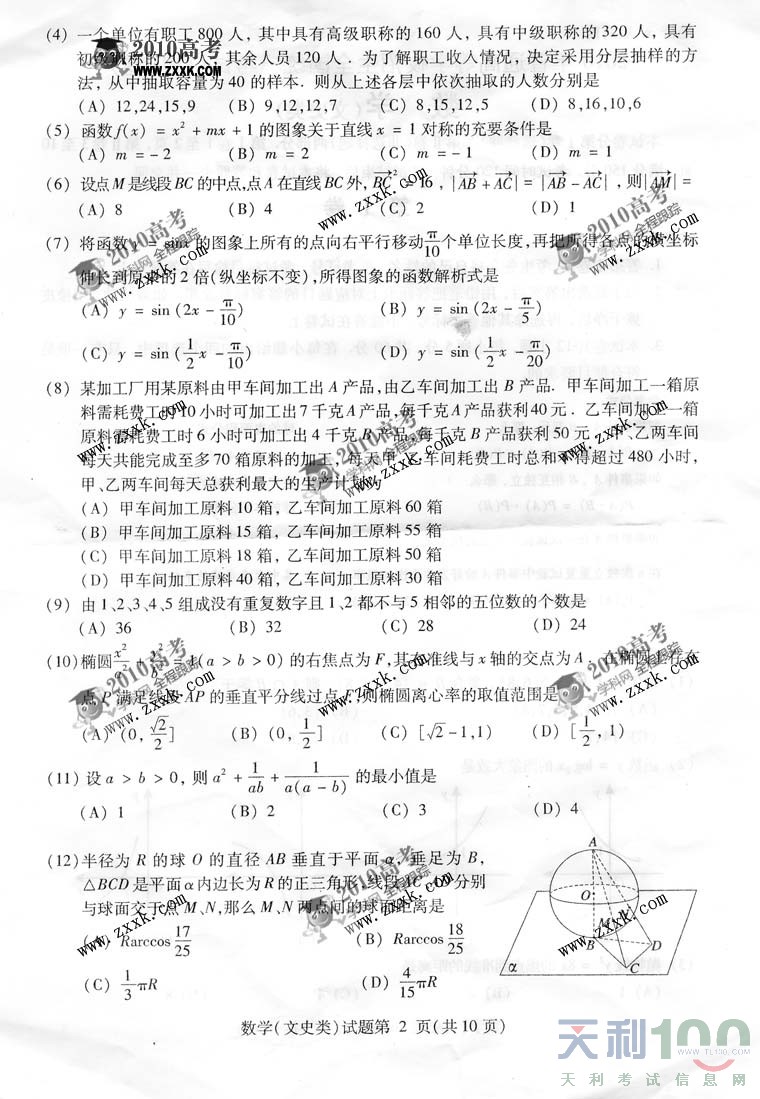 (4) 一个单位有职工800人，其中具有高级职称的160人，具有中级职称的320人，具有
初级职称的200人，其余人员120人．为了解职工收入情况，决定采用分层抽样的方
法，从中抽取容量为40的样本．则从上述各层中依次抽取的人数分别是
(A) 12,24,15,9 (B) 9,12,12,7 (C) 8,15,12,5 (D) 8,16,10,6
(5) 函数f(x) = x² + mx + 1 的图象关于直线 x = 1 对称的充要条件是
(A) m = -2 (B) m = 2 (C) m = -1 (D) m = 1
(6) 设点M是线段BC的中点,点A在直线BC外, BC² = 16 , |AB + AC| = |AB - AC| , 则|AM| =
(A) 8 (B) 4 (C) 2 (D) 1
(7) 将函数y = sinx 的图象上所有的点向右平行移动π/10个单位长度,再把所得各点的横坐标
伸长到原来的2倍(纵坐标不变),所得图象的函数解析式是
(A) y = sin (2x - π/10) (B) y = sin (2x - π/5)
(C) y = sin (1/2 x - π/10) (D) y = sin (1/2 x - π/20)
(8) 某加工厂用某原料由甲车间加工出A产品,由乙车间加工出B产品．甲车间加工一箱原
料需耗费工时10小时可加工出7千克A产品,每千克A产品获利40元．乙车间加工一箱
原料需耗费工时6小时可加工出4千克B产品,每千克B产品获利50元．甲、乙两车间
每天共能完成至多70箱原料的加工，每天甲、乙车间耗费工时总和不得超过480小时,
甲、乙两车间每天总获利最大的生产计划为
(A) 甲车间加工原料10箱，乙车间加工原料60箱
(B) 甲车间加工原料15箱，乙车间加工原料55箱
(C) 甲车间加工原料18箱，乙车间加工原料50箱
(D) 甲车间加工原料40箱，乙车间加工原料30箱
(9) 由1、2、3、4、5组成没有重复数字且1、2都不与5相邻的五位数的个数是
(A) 36 (B) 32 (C) 28 (D) 24
(10) 椭圆x²/a² + y²/b² = 1(a > b > 0) 的右焦点为F,其右准线与x轴的交点为A．在椭圆上存在
点P满足线段AP的垂直平分线过点F,则椭圆离心率的取值范围是
(A) (0, √2/2] (B) (0, 1/2] (C) [√2 - 1,1) (D) [1/2, 1)
(11) 设 a > b > 0, 则 a² + 1/ab + 1/a(a - b) 的最小值是
(A) 1 (B) 2 (C) 3 (D) 4
(12) 半径为R的球O的直径AB垂直于平面α，垂足为B,
△BCD是平面α内边长为R的正三角形,线段AC、AD分别
与球面交于点M、N,那么M、N两点间的球面距离是
(A) Rarccos 17/25 (B) Rarccos 18/25
(C) 1/3 πR (D) 4/15 πR
A
O
B
D
C
α
数学(文史类)试题第 2 页(共10页)
2010高考
WWW.ZXXK.COM
2010高考
学科网 全程跟踪
www.zxxk.com
天利100
WWW.TL100.COM
天利考试信息网